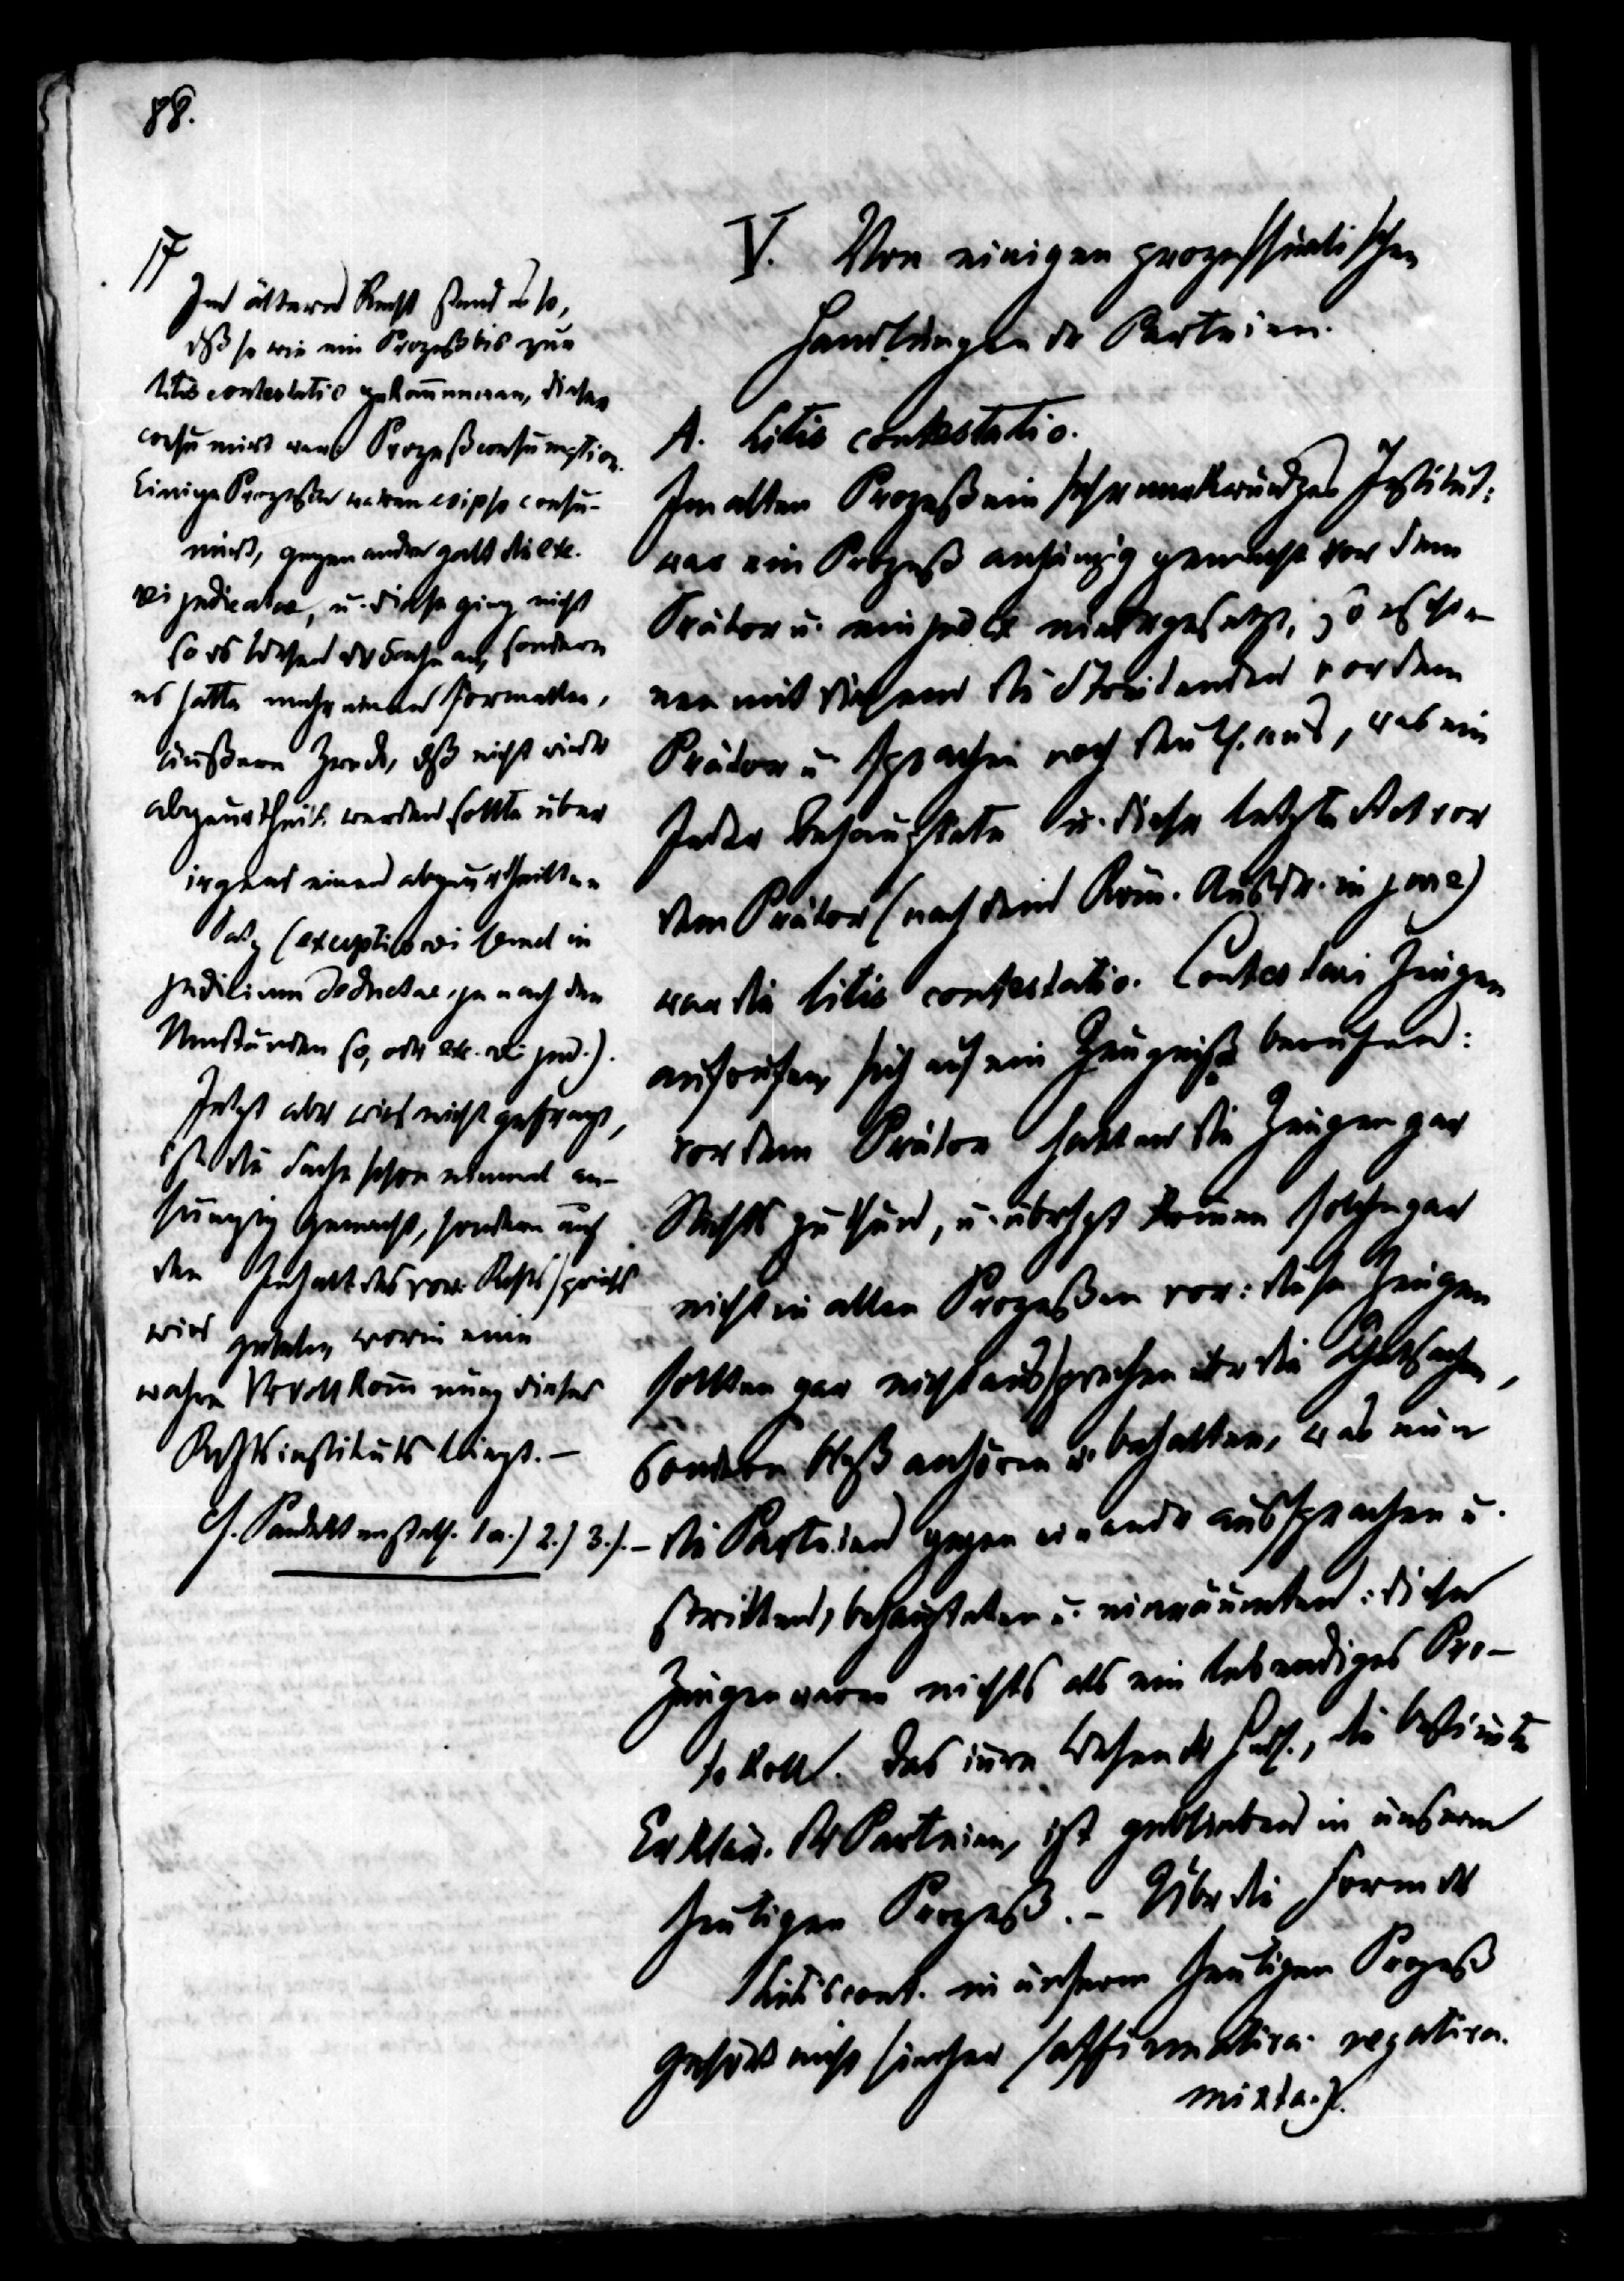 88.
17
Im ältern Recht stand es so,
dß so wie ein Prozeß bis zur
litis contestatio gekommen war, dieser
consumirt war: Prozeßconsumption.
Einige Prozesse waren eo ipso consu-
mirt, gegen andre galt die exc.
rei judicatae, u. diese ging nicht
so ins Wesen der Sache ein, sondern
es hatte mehr einen formellen,
äußern Zweck, dß nicht wieder
abgeurtheilt werden sollte über
irgend einen abgeurtheilten
Satz (exceptio rei semel in
judicium deductae, je nach den
Umständen so, oder exc. rei jud.).
Jetzt aber wird nicht gefragt,
ist die Sache schon einmal an-
hängig gemacht, sondern auf
den Inhalt des vor. Rchtsspruchs
wird gesehen, worin eine
wahre Vervollkommnung dieses
Rchtsinstituts liegt. –
cf. 1a.) 2.) 3.). –
V. Von einigen prozessualischen
Handlungen der Parteien.
A. Litis contestatio.
Im alten Prozeß ein sehr merkwürdges Institut:
war ein Prozeß anhängig gemacht vor dem
Prätor u. ein judex niedergesetzt, so erschie-
nen mit diesem die Streitenden vor dem
Prätor u. sprachen noch deutl. aus, was ein
Jeder behauptete u. dieser letzte Act vor
dem Prätor (nach dem Röm. Ausdr. in jure)
war die litis contestatio. Contestari Zeugen
aufrufen, sich auf ein Zeugniß berufen:
vor dem Prätor hatten die Zeugen gar
Nichts zu thun, u. überhpt kommen solche gar
nicht in allen Prozeßen vor: diese Zeugen
sollten gar nicht aussprechen über die Thatsachen,
sondern bloß anhören u. behalten, was nun
die Parteien gegen einander aussprachen u.
stritten, behaupteten u. einräumten: diese
Zeugen waren nichts als ein lebendiges Pro-
tokoll. Das innre Wesen der Hdl., die bestimmte
Erklär. der Parteien, ist geblieben in unserm
heutigen Prozeß. – Über die Form der
Litiscont. in unserm heutigen Prozeß
gehört nicht hierher (affirmativa. negativa.
mixta.).